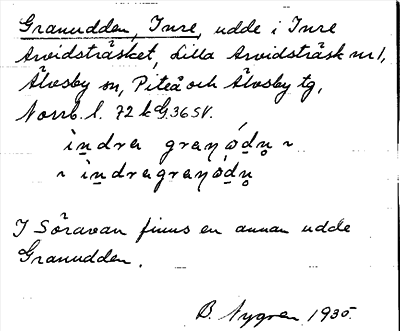 Granudden, Inre, udde i Inre
Arvidsträsket, Lilla Arvidsträsk nr 1,
Älvsby sn, Piteå och Älvsby tg,
Norrb. l. 72 k G 36 SV.
ìndra granó̀dn̥ ~
~ ìndragranó̀dn̥
I Söravan finns en annan udde
Granudden.
B. Nygren 1935.